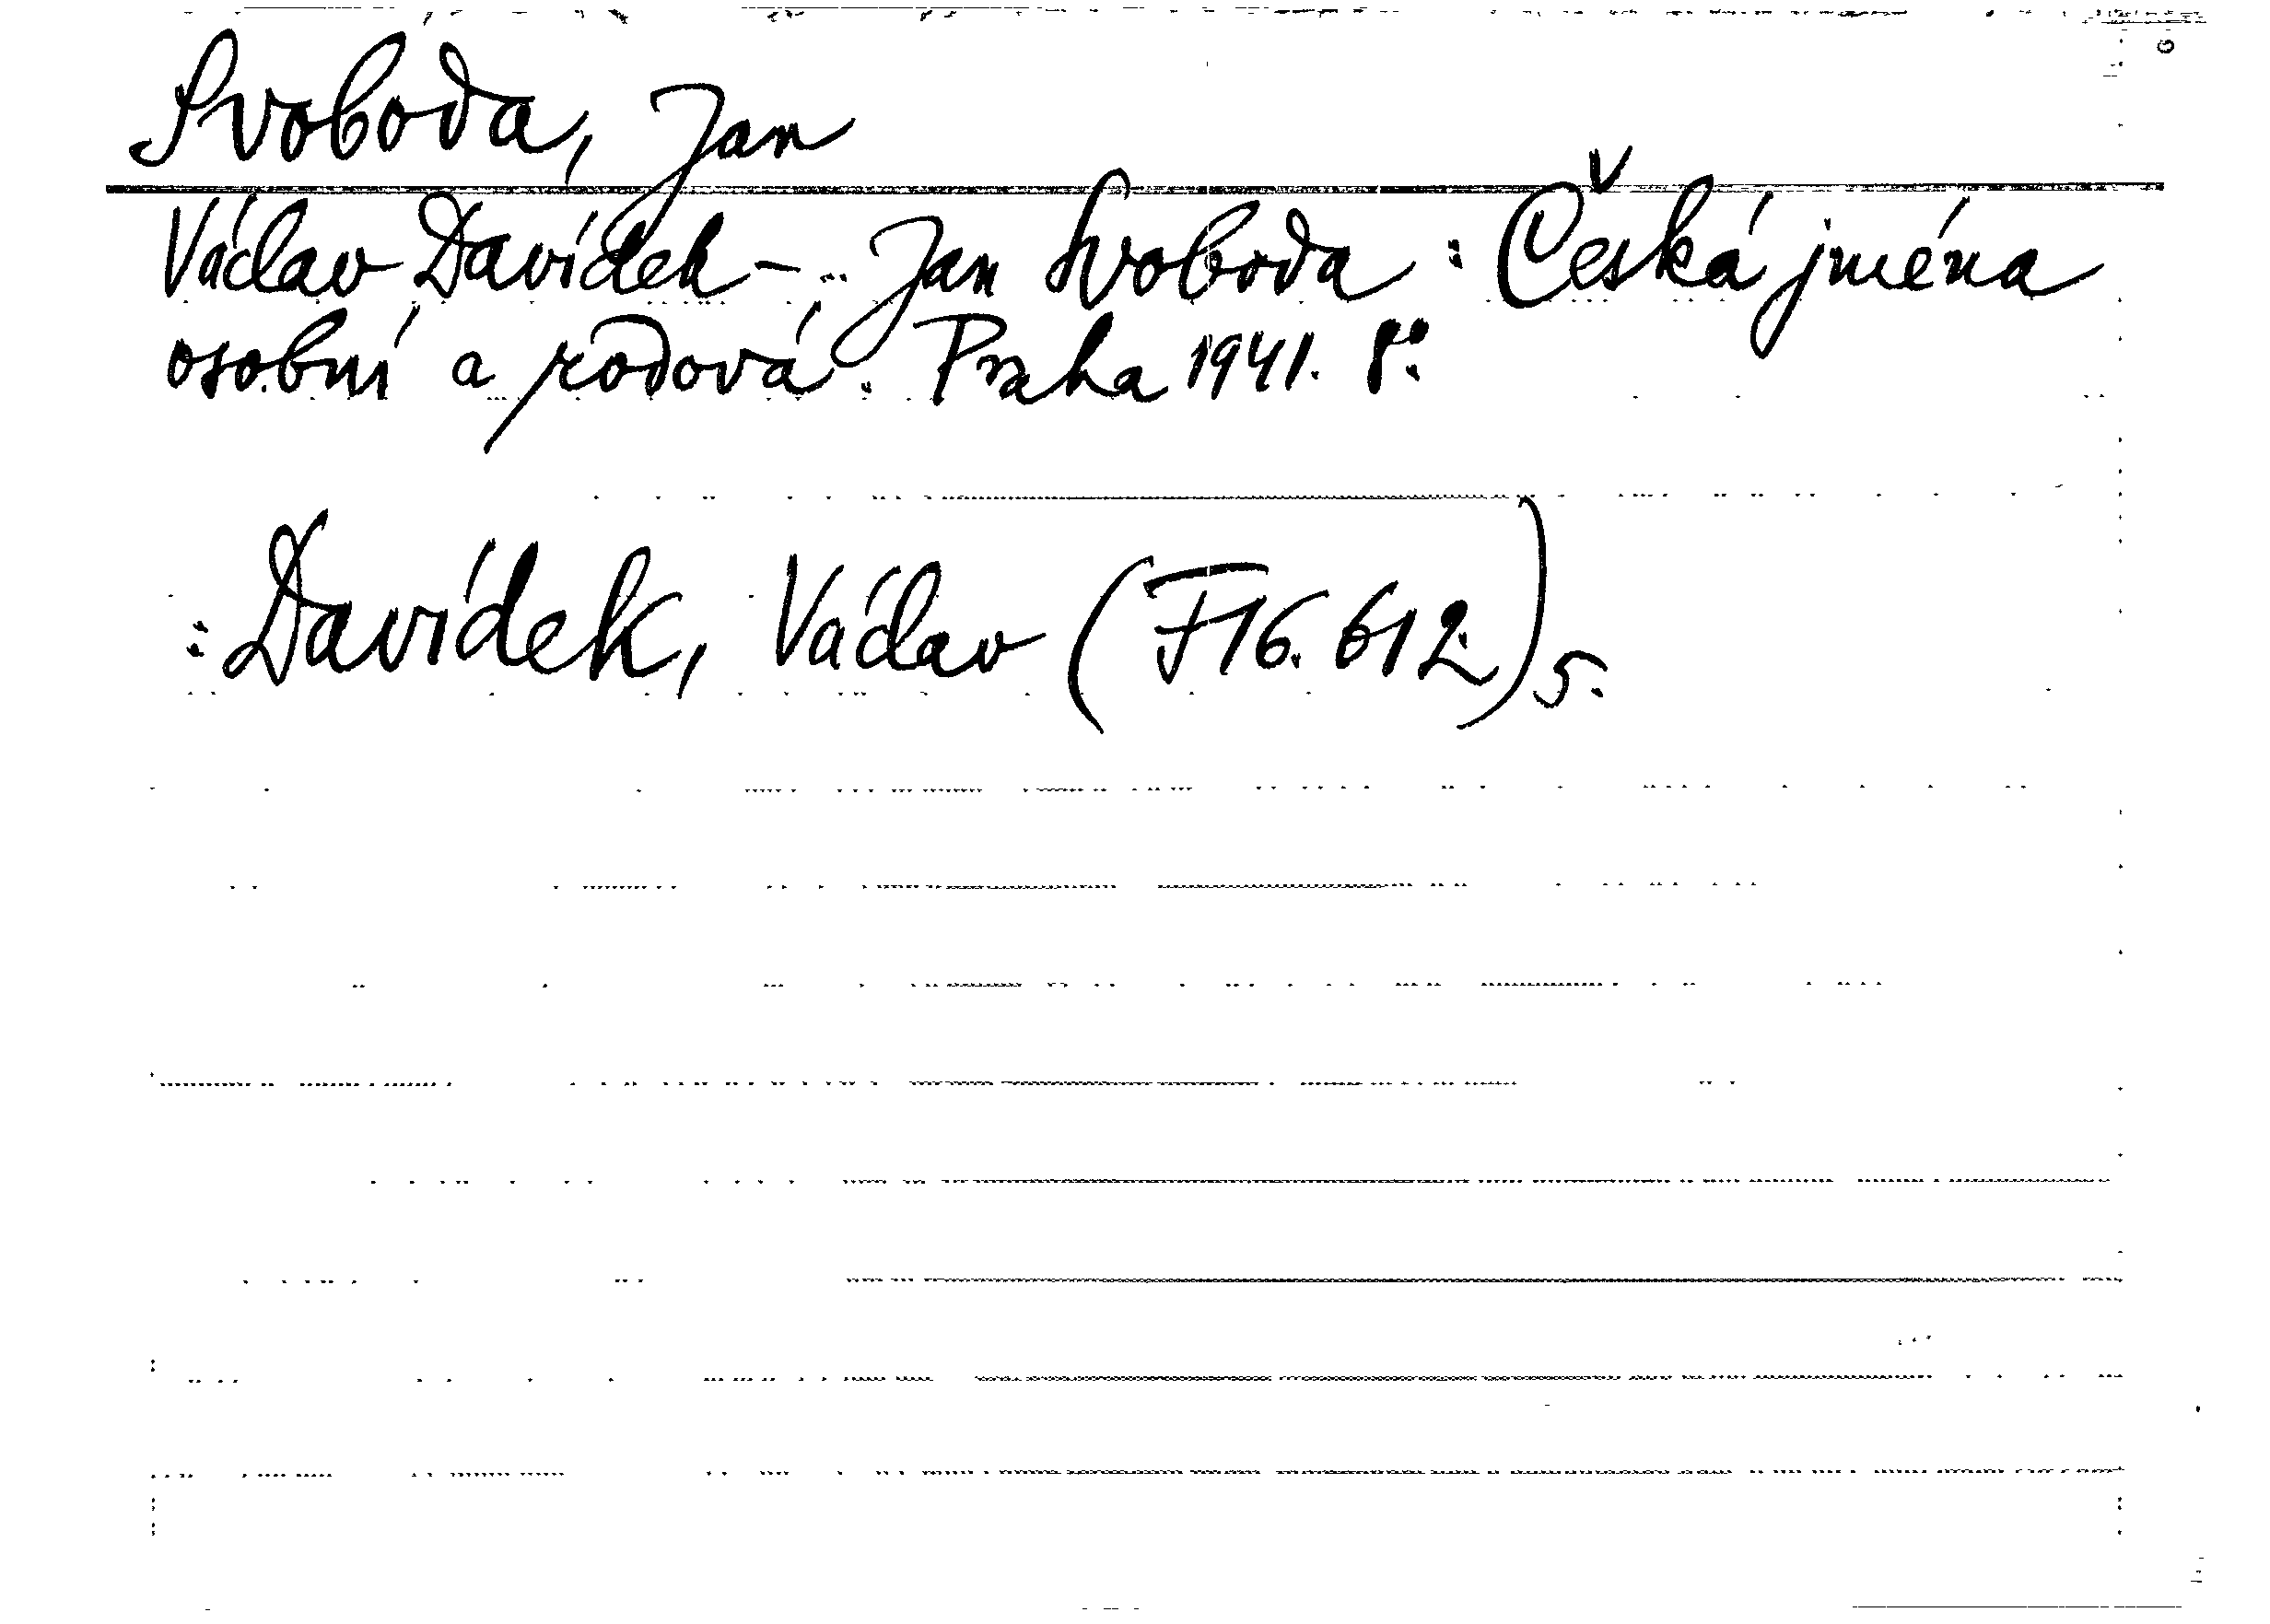 Svoboda, Jan
Václav Davídek - Jan Svoboda: Česká jména
osobní a rodová. Praha 1941. 8°.
: Davídek, Václav (F 16.612) 5.